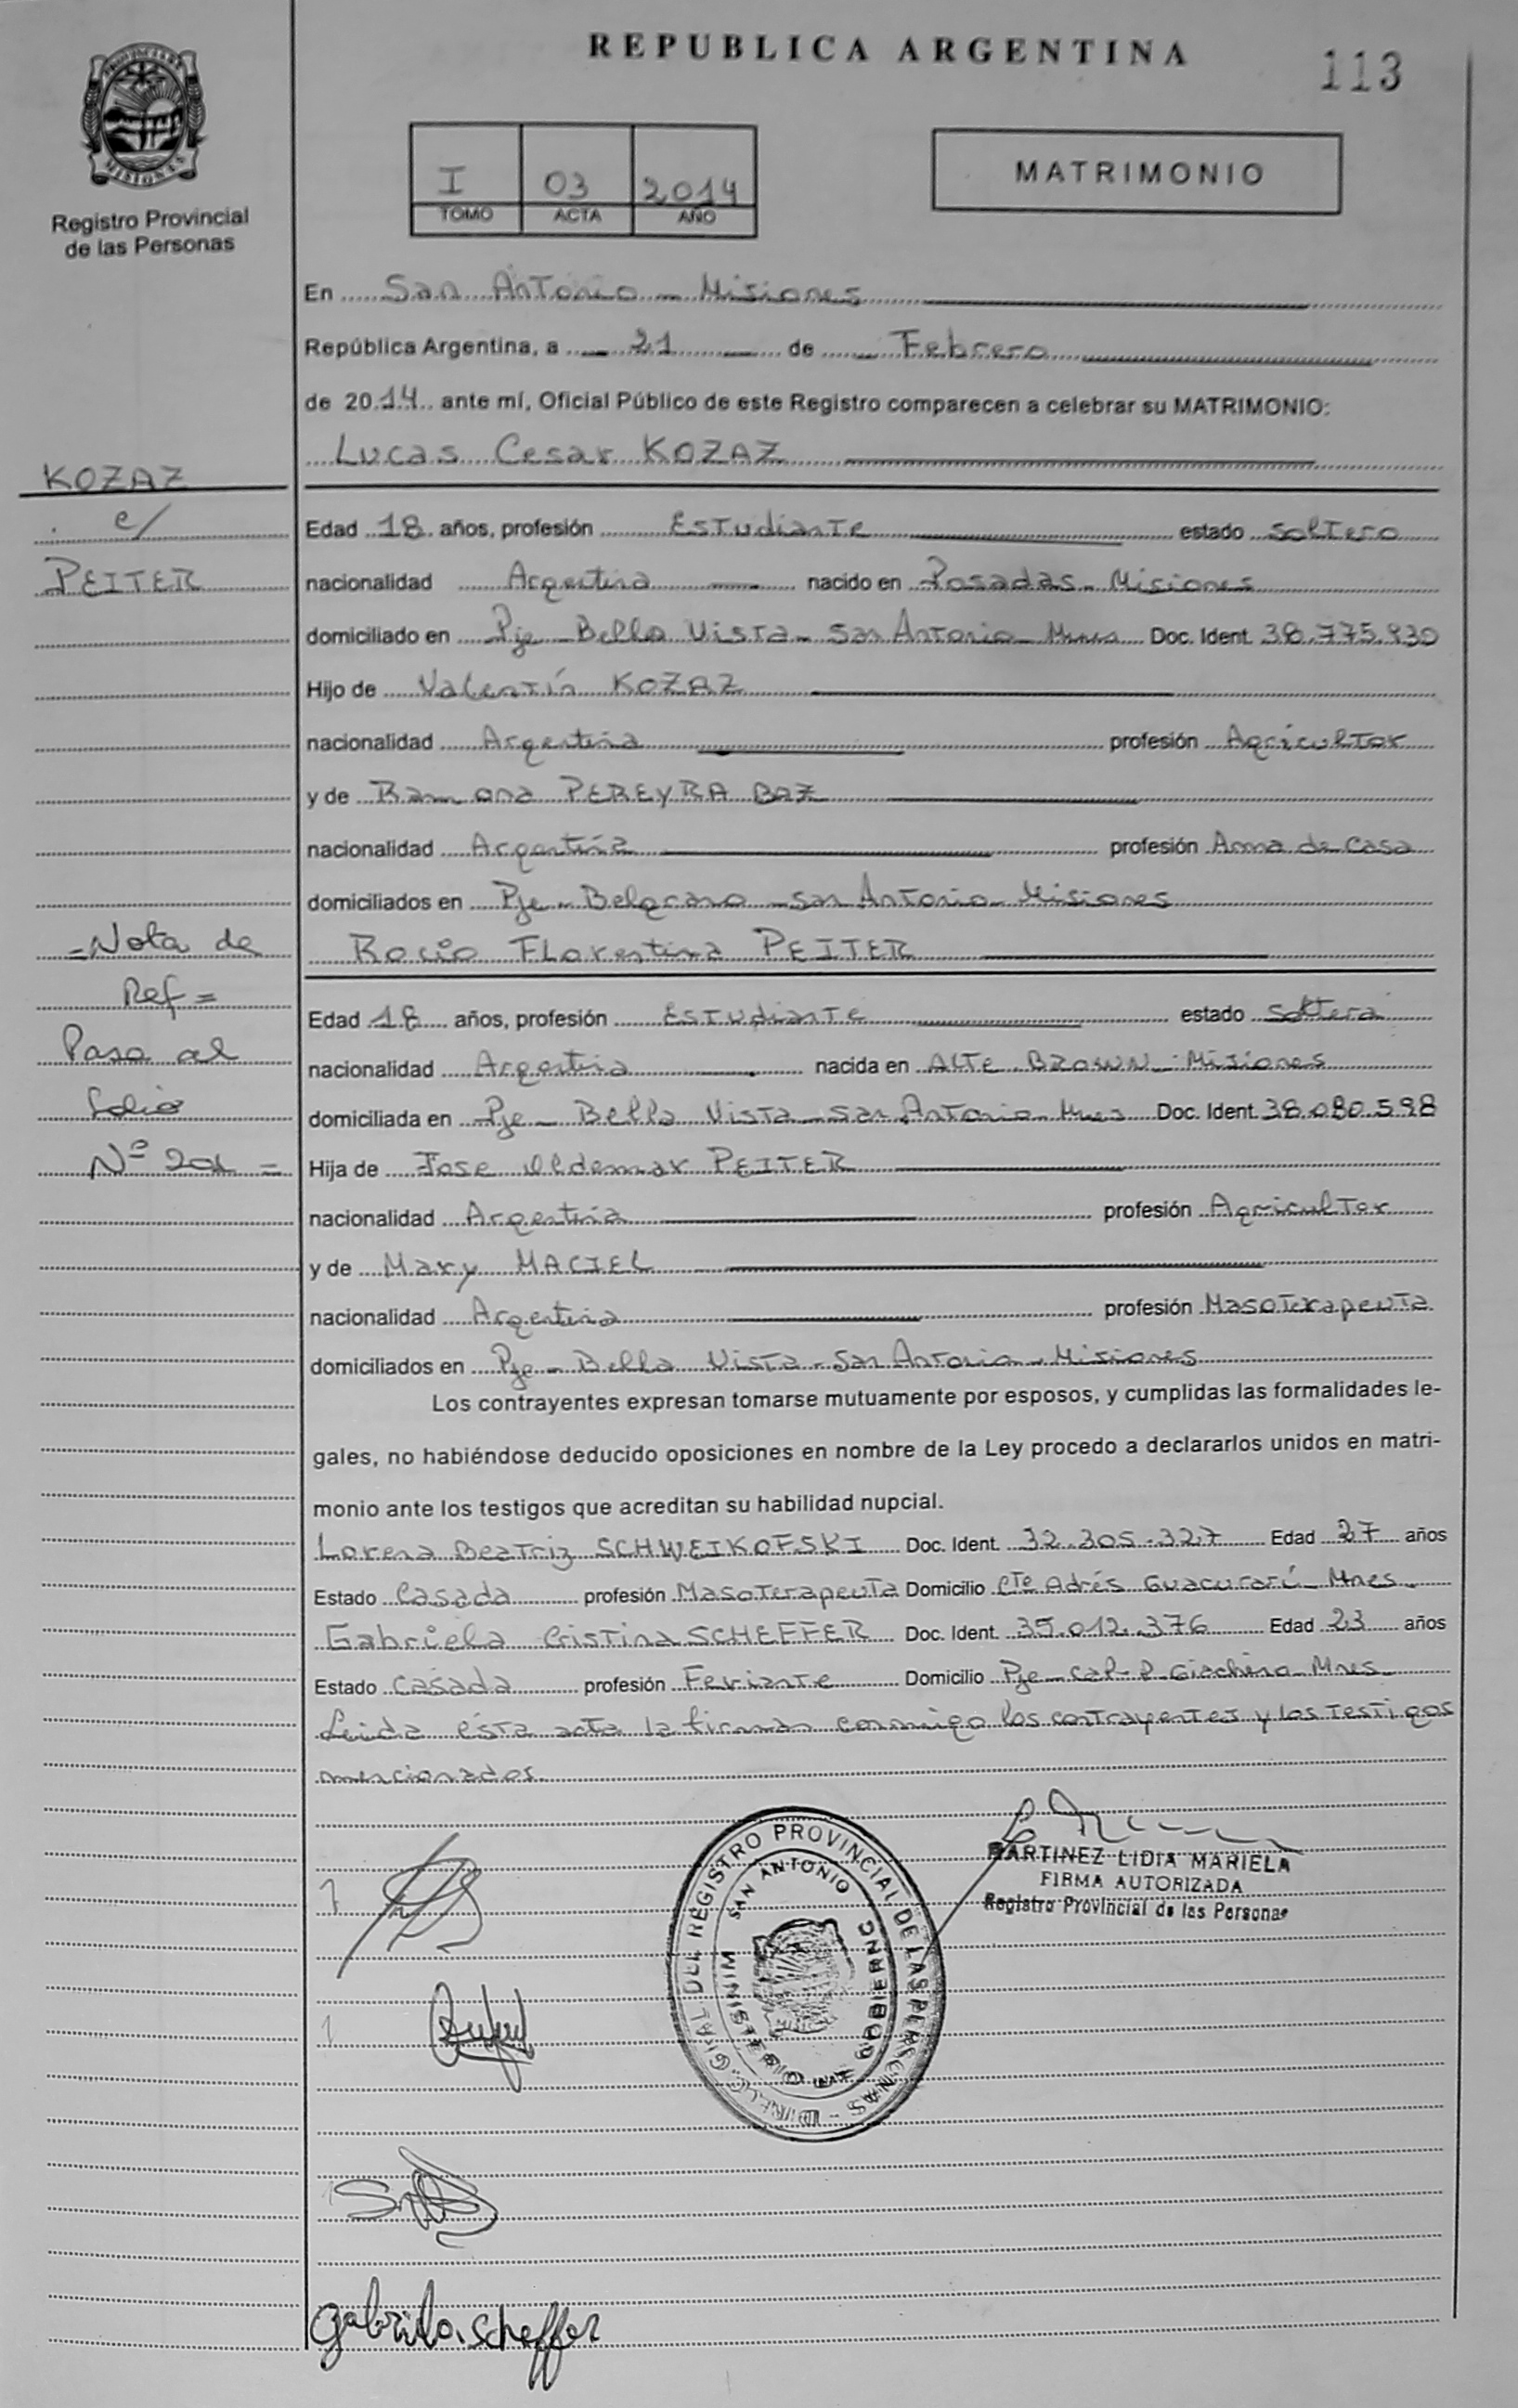 REPUBLICA ARGENTINA
113
PROVINCIA DE MISIONES
Registro Provincial
de las Personas
I 03 2014
TOMO ACTA AÑO
MATRIMONIO
En San Antonio - Misiones
República Argentina, a 21 de Febrero
de 2014 ante mí, Oficial Público de este Registro comparecen a celebrar su MATRIMONIO:
Lucas Cesar KOZAZ
KOZAZ
c/
PEITER
Edad 18 años, profesión Estudiante estado soltero
nacionalidad Argentina nacido en Posadas - Misiones
domiciliado en Pje - Bella Vista - San Antonio - Mnes Doc. Ident. 38.775.930
Hijo de Valentín KOZAZ
nacionalidad Argentina profesión Agricultor
y de Ramona PEREYRA BAZ
nacionalidad Argentina profesión Ama de Casa
domiciliados en Pje - Belgrano - San Antonio - Misiones
Rocio Florentina PEITER
=Nota de
Ref=
Pasa al
folio
Nº 201 =
Edad 18 años, profesión Estudiante estado soltera
nacionalidad Argentina nacida en ALTE. BROWN - Misiones
domiciliada en Pje - Bella Vista - San Antonio - Mnes Doc. Ident. 38.080.598
Hija de Jose Oldemar PEITER
nacionalidad Argentina profesión Agricultor
y de Mary MACIEL
nacionalidad Argentina profesión Masoterapeuta
domiciliados en Pje - Bella Vista - San Antonio - Misiones
Los contrayentes expresan tomarse mutuamente por esposos, y cumplidas las formalidades le-
gales, no habiéndose deducido oposiciones en nombre de la Ley procedo a declararlos unidos en matri-
monio ante los testigos que acreditan su habilidad nupcial.
Lorena Beatriz SCHWEIKOFSKI Doc. Ident. 32.305.327 Edad 27 años
Estado Casada profesión Masoterapeuta Domicilio Cte Adrés Guacurarí - Mnes
Gabriela Cristina SCHEFFER Doc. Ident. 35.012.376 Edad 23 años
Estado Casada profesión Feriante Domicilio Pje - Cap - P. Giachino - Mnes
Leida ésta acta la firman conmigo los contrayentes y los testigos
mencionados.
MARTINEZ LIDIA MARIELA
FIRMA AUTORIZADA
Registro Provincial de las Personas
DIREC. GRAL. DEL REGISTRO PROVINCIAL DE LAS PERSONAS
SAN ANTONIO
MINISTERIO DE GOBIERNO
gabriela scheffer